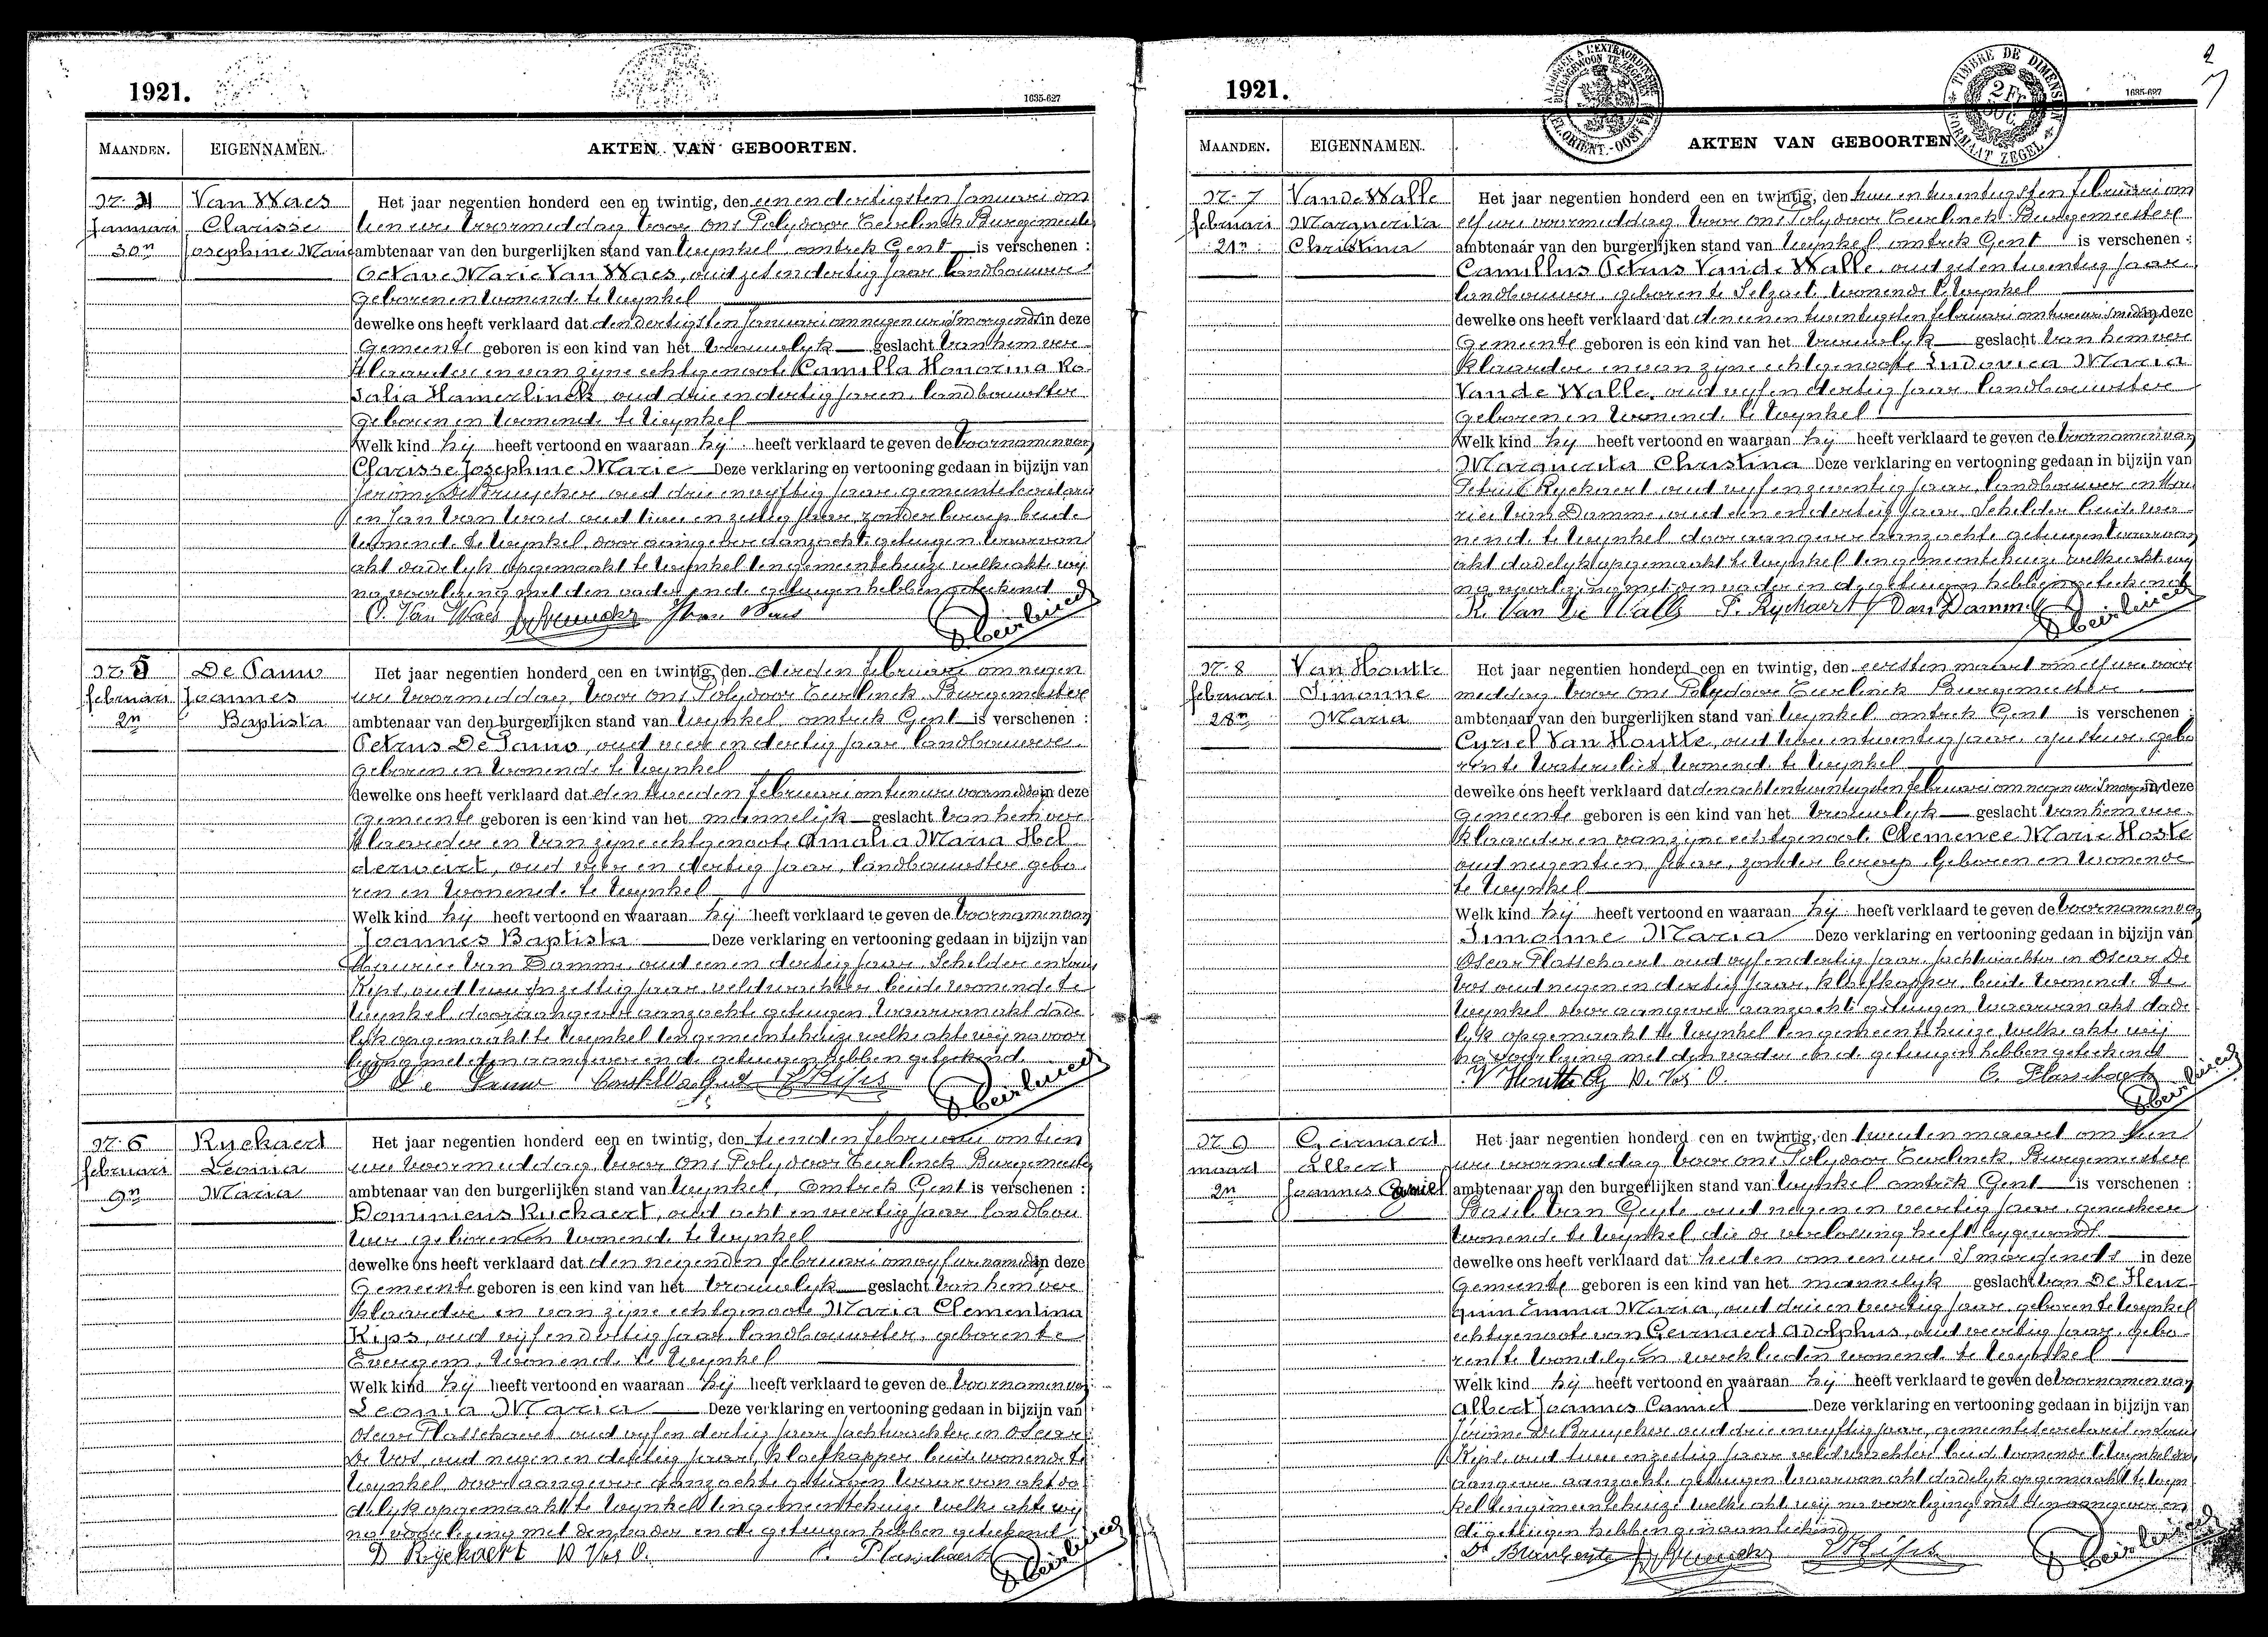 1921.
1635-627
MAANDEN.
EIGENNAMEN.
AKTEN VAN GEBOORTEN.
Nr. 4
Januari
30n
Van Waes
Clarisse
Josephine Marie
Het jaar negentien honderd een en twintig, den een en dertigsten Januari om
tien ure voormiddag, voor Ons Polydoor Eeirlinck Burgemeester
ambtenaar van den burgerlijken stand van Wynkel, omtrek Gent is verschenen :
Octave Marie Van Waes, oud zes en dertig jaar landbouwer
geboren en wonende te Wynkel
dewelke ons heeft verklaard dat den dertigsten Januari om negen ure 's morgends in deze
Gemeente geboren is een kind van het vrouwelyk geslacht van hem ver
klaarder en van zyne echtgenoote Camilla Honorina Ro
salia Hamerlinck oud drie en dertig jaren, landbouwster
geboren en wonende te Wynkel
Welk kind hij heeft vertoond en waaraan hij heeft verklaard te geven de voornamen van
Clarisse Josephine Marie Deze verklaring en vertooning gedaan in bijzijn van
Jerome De Bruycker oud drie en vyftig jaar, gemeentesecretaris
en Jan Van Waes oud twee en zestig jaar, zonder beroep beide
wonende te Wynkel, door aangever aanzochte getuigen waarvan
akt dadelyk opgemaakt te Wynkel ten gemeentehuize welke akte wij
na voorlezing met den vader en de getuigen hebben geteekend
O. Van Waes
Nr. 5
februari
2n
De Pauw
Joannes
Baptista
Het jaar negentien honderd een en twintig, den derden februari om negen
ure voormiddag, voor Ons Polydoor Eeirlinck Burgemeester
ambtenaar van den burgerlijken stand van Wynkel, omtrek Gent is verschenen :
Petrus De Pauw, oud vier en dertig jaar landbouwer
geboren en wonende te Wynkel
dewelke ons heeft verklaard dat den tweeden februari om tien ure voormiddag in deze
gemeente geboren is een kind van het mannelijk geslacht van hem ver
klaarder en van zyne echtgenoote Amalia Maria Hel
derweirt, oud vier en dertig jaar, landbouwster gebo
ren en wonende te Wynkel
Welk kind hij heeft vertoond en waaraan hij heeft verklaard te geven de voornamen van
Joannes Baptista Deze verklaring en vertooning gedaan in bijzijn van
Maurice Van Damme, oud een en dertig jaar, Schilder en
Kips, oud twee en zestig jaar, veldwachter beide wonende te
Wynkel door aangever aanzochte getuigen waarvan akt dade
lyk opgemaakt te Wynkel ten gemeentehuize welke akte wij na voor
lezing met den aangever en de getuigen hebben geteekend
De Pauw
Nr. 6
februari
9n
Ryckaert
Leonia
Maria
Het jaar negentien honderd een en twintig, den tienden februari om tien
ure voormiddag, voor Ons Polydoor Eeirlinck Burgemeester
ambtenaar van den burgerlijken stand van Wynkel, omtrek Gent is verschenen :
Dominicus Ryckaert, oud acht en veertig jaar landbou
wer geboren en wonende te Wynkel
dewelke ons heeft verklaard dat den negenden februari om vyf ure namiddag in deze
Gemeente geboren is een kind van het vrouwelyk geslacht van hem ver
klaarder en van zyne echtgenoote Maria Clementina
Kips, oud vijf en dertig jaar, landbouwster, geboren te
Evergem, wonende te Wynkel
Welk kind hij heeft vertoond en waaraan hij heeft verklaard te geven de voornamen van
Leonia Maria Deze verklaring en vertooning gedaan in bijzijn van
Oscar Plasschaert oud vyf en dertig jaar jachtwachter en Oscar
De Vos, oud negen en dertig jaar, kloefkapper beide wonende te
Wynkel, door aangever aanzochte getuigen waarvan akt da
delyk opgemaakt te Wynkel ten gemeentehuize welke akte wy
na voorlezing met den vader en de getuigen hebben geteekend
D Ryckaert D Vos O. O. Plasschaert
1921.
1635-627
TIMBRE DE DIMENSION
FORMAAT ZEGEL
2 Fr
50 C.
MAANDEN.
EIGENNAMEN.
AKTEN VAN GEBOORTEN.
Nr. 7
februari
21n
Van de Walle
Marguerita
Christina
Het jaar negentien honderd een en twintig, den twee en twintigsten februari om
elf ure voormiddag voor ons Polydoor Eeirlinck Burgemeester
ambtenaar van den burgerlijken stand van Wynkel omtrek Gent is verschenen :
Camillus Petrus Van de Walle, oud zes en twintig jaar
landbouwer, geboren te Selzaete wonende te Wynkel
dewelke ons heeft verklaard dat den een en twintigsten februari om in deze
Gemeente geboren is een kind van het vrouwelyk geslacht van hem ver
klaarder en van zyne echtgenoote Ludovica Maria
Van de Walle, oud vyf en dertig jaar landbouwster
geboren en wonende te Wynkel
Welk kind hij heeft vertoond en waaraan hij heeft verklaard te geven de voornamen van
Marguerita Christina Deze verklaring en vertooning gedaan in bijzijn van
Petrus Ryckaert oud vyf en zeventig jaar, landbouwer en Mau
rice Van Damme, oud een en dertig jaar, Schilder beide wo
nende te Wynkel door aangever aanzochte getuigen waarvan
akt dadelyk opgemaakt te Wynkel ten gemeentehuize welke akt wy
na voorlezing met den vader en de getuigen hebben geteekend
K. Van De Walle P. Ryckaert Van Damme
Nr. 8
februari
28n
Van Houtte
Simonne
Maria
Het jaar negentien honderd een en twintig, den eersten maart om elf ure voor
middag voor Ons Polydoor Eeirlinck Burgemeester
ambtenaar van den burgerlijken stand van Wynkel omtrek Gent is verschenen :
Cyriel Van Houtte, oud twee en twintig jaar, ajusteur, gebo
ren te Watervliet, wonende te Wynkel
dewelke ons heeft verklaard dat den acht en twintigsten februari om negen ure 's morgends in deze
gemeente geboren is een kind van het vrouwelyk geslacht van hem ver
klaarder en van zyne echtgenoote Clemence Marie Hoste
oud negentien jaar, zonder beroep geboren en wonende
te Wynkel
Welk kind hij heeft vertoond en waaraan hij heeft verklaard te geven de voornamen van
Simonne Maria Deze verklaring en vertooning gedaan in bijzijn van
Oscar Plasschaert oud vyf en dertig jaar, jachtwachter en Oscar De
Vos oud negen en dertig jaar, kloefkapper, beide wonende te
Wynkel door aangever aanzochte getuigen waarvan akt dade
lyk opgemaakt te Wynkel ten gemeentehuize, welke akte wij
na voorlezing met den vader en de getuigen hebben geteekend
V Houtte Cy D. Vos O. O. Plasschaert
Nr. 9
maart
2n
Geirnaert
Albert
Joannes Camiel
Het jaar negentien honderd een en twintig, den tweeden maart om tien
ure voormiddag voor ons Polydoor Eeirlinck, Burgemeester
ambtenaar van den burgerlijken stand van Wynkel omtrek Gent is verschenen :
Basil Van Guyte oud negen en veertig jaar, geneesheer
wonende te Wynkel, die de verlossing heeft bygewoond
dewelke ons heeft verklaard dat heden om een ure 's morgends in deze
Gemeente geboren is een kind van het mannelyk geslacht van De Heur
quin Emma Maria, oud drie en veertig jaar geboren te Wynkel
echtgenoote van Geirnaert Adolphus, oud veertig jaar, gebo
ren te Wondelgem werklieden wonende te Wynkel
Welk kind hij heeft vertoond en waaraan hij heeft verklaard te geven de voornamen van
Albert Joannes Camiel Deze verklaring en vertooning gedaan in bijzijn van
Jerome De Bruycker oud drie en vyftig jaar, gemeentesecretaris en
Kips, oud twee en zestig jaar veldwachter beide wonende te Wynkel door
aangever aanzochte getuigen waarvan akt dadelyk opgemaakt te Wyn
kel ten gemeentehuize welke akt wij na voorlezing met den aangever en
de getuigen hebben geteekend